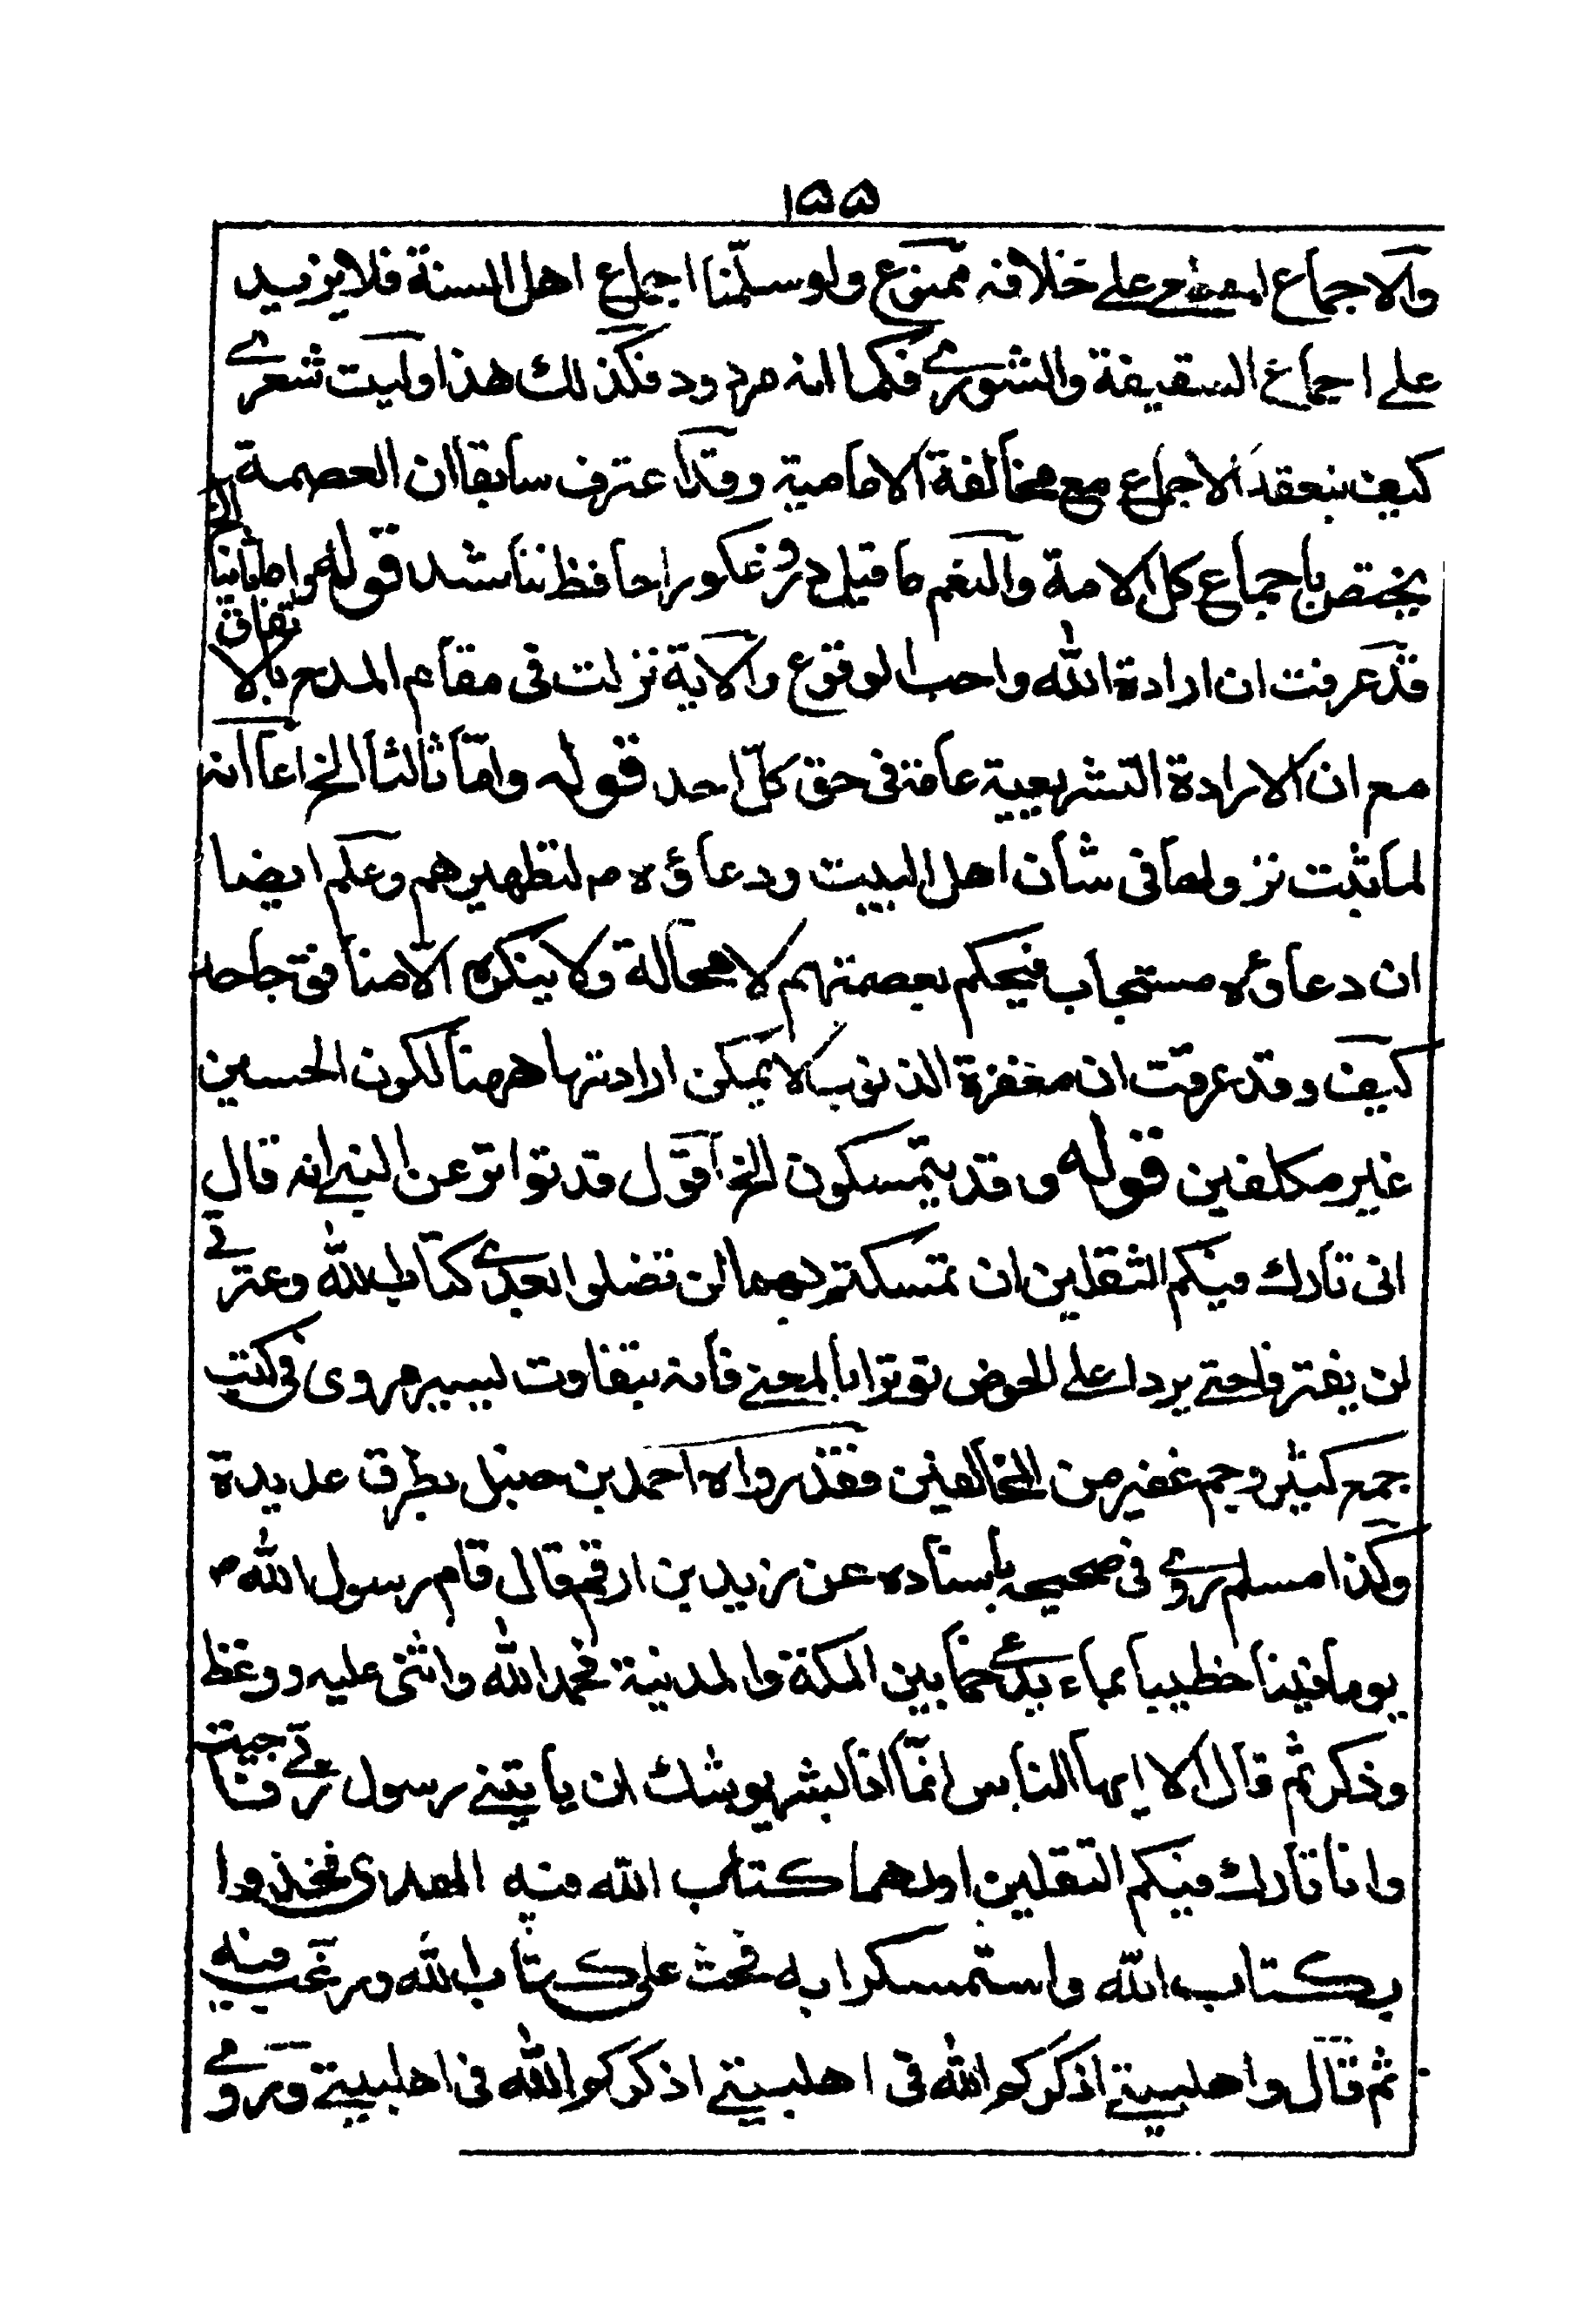 ١٥٥
والاجماع على خلافه ممنوع ولو سلّمنا اجماع اهل السنة فلا يزيد
على اجماع السقيفة والشورے فكما انه مردود فكذلك هذا وليت شعرے
كيف ينعقد الاجماع مع مخالفة الامامية وقد اعترف سابقا ان العصمة
يختص باجماع كل الامة والنعم ما قيل دروغكو را حافظ نباشد قوله واما ثانيا الخ
قد عرفت ان ارادة الله واجب الوقوع والاية نزلت فى مقام المدح بالاتفاق
مع ان الارادة التشريعية عامة فى حق كلّ احد قوله وامّا ثالثا الخ اعا انه
لما ثبت نزولها فى شان اهل البيت ودعاؤه ص لتطهيرهم وعلم ايضا
ان دعاؤه مستجاب فيحكم بعصمتهم لا محالة ولا ينكره الا منافق جاحد
كيف وقد عرفت ان مغفرة الذنوب لا يمكن ارادتها ههنا لكون الحسين
غير مكلفين قوله وقد يتمسكون الخ اقول قد تواتر عن النبے انه قال
انى تارك فيكم الثقلين ان تمسكتم بهما لن تضلوا بعدے كتاب الله وعترتے
لن يفترقا حتے يردا علے الحوض تواترا بالمعنے فانه بتفاوت يسير مروى فى كتب
جمع كثير وجم غفير من المخالفين فقد رواه احمد بن حنبل بطرق عديدة
وكذا مسلم روے فى صحيحه باسناده عن زيد بن ارقم قال قام رسول الله ص
يوما فينا خطيبا بماء يدعے خما بين المكة والمدينة فحمد الله واثنى عليه ووعظ
وذكر ثم قال الا ايها الناس انّما انا بشر يوشك ان ياتينے رسول ربے فاجيب
وانا تارك فيكم الثقلين اولهما كتاب الله فيه الهدى فخذوا
بكتاب الله واستمسكوا به فحث على كتاب الله ورغب فيه
ثم قال واهلبيتے اذكركم الله فى اهلبيتے اذكركم الله فى اهلبيتے وروے